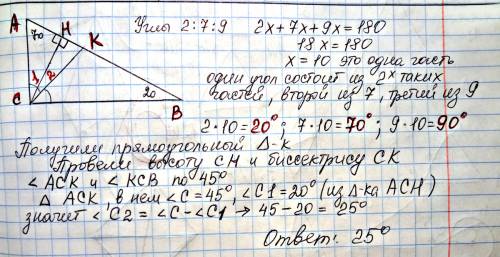 A
70
H
K
1
2
C
20
B
Углы 2:7:9
2x+7x+9x=180
18x=180
x=10 это одна часть
один угол состоит из 2х таких
частей, второй из 7, третий из 9
2·10=20°; 7·10=70°; 9·10=90°
Получили прямоугольный Δ-к
Провели высоту CH и биссектрису CK
∠ACK и ∠KCB по 45°
Δ ACK, в нем ∠C=45°, ∠C1=20° (из Δ-ка ACH)
значит ∠C2=∠C-∠C1 → 45-20=25°
Ответ: 25°